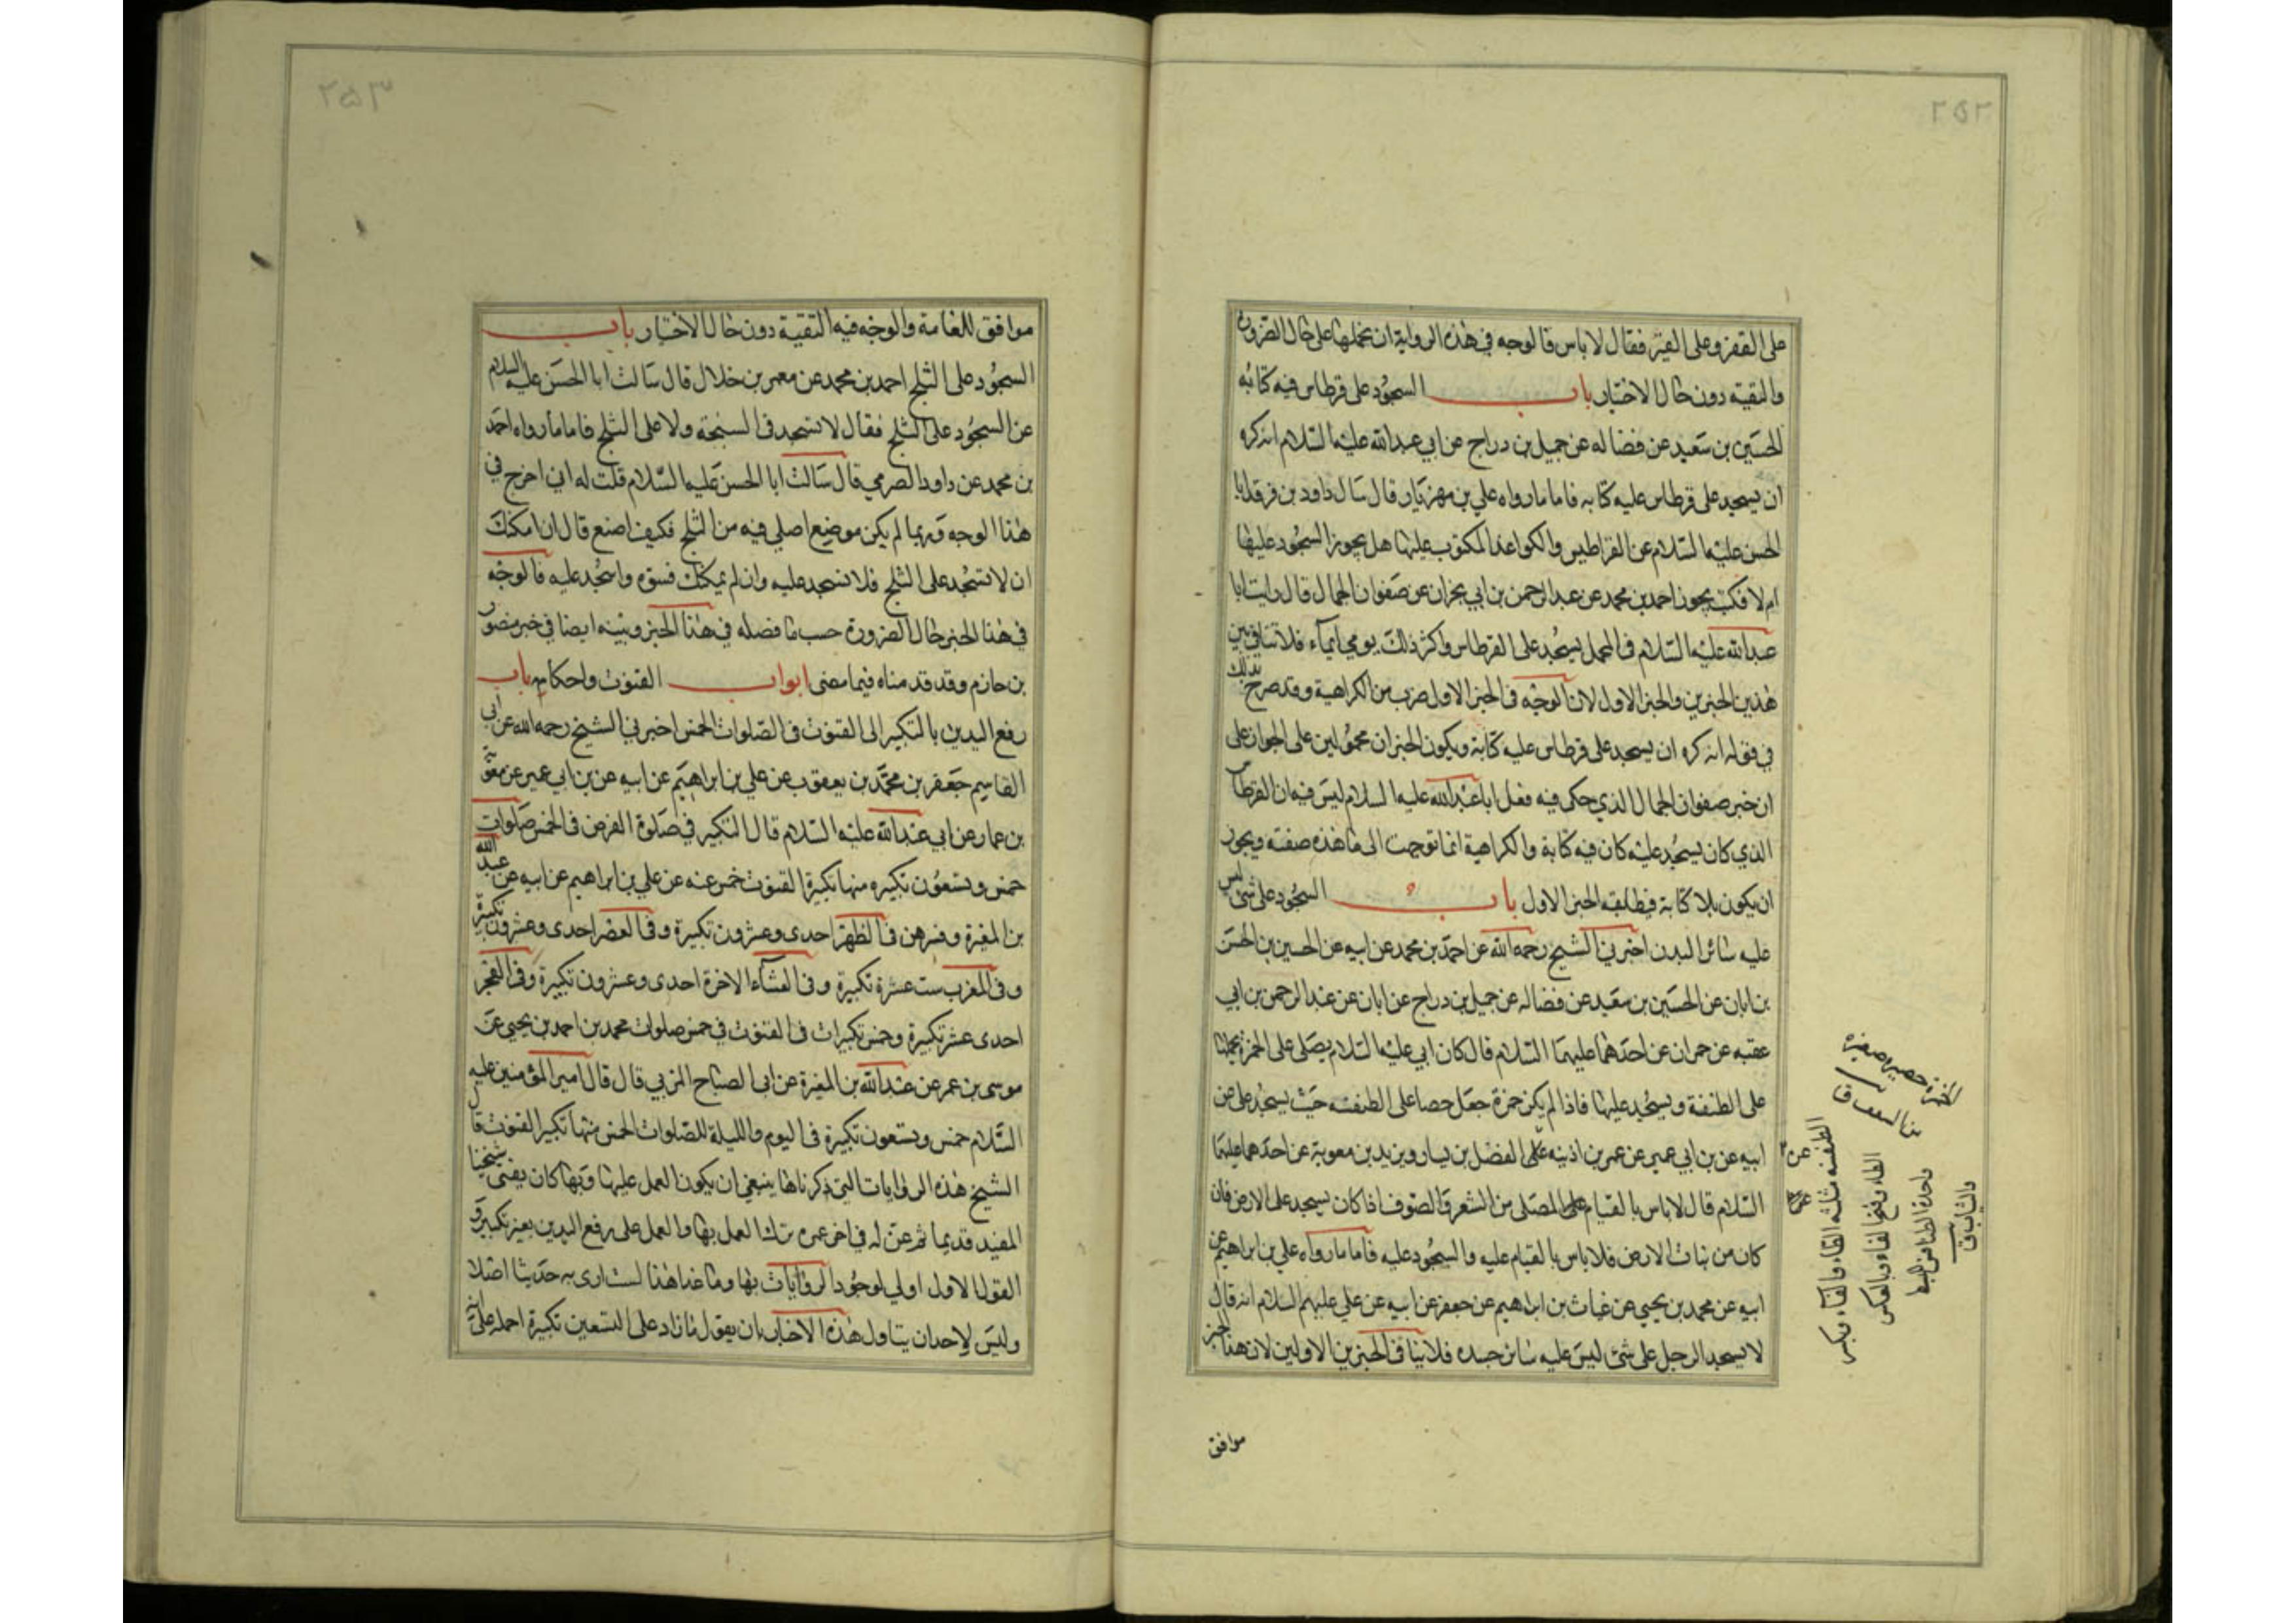 ٢٥٢
على القفر وعلى القير فقال لا باس فالوجه في هذه الرواية ان نحملها على حال الضرورة
والتقية دون حال الاختيار باب السجود على قرطاس فيه كتابه
الحسين بن سعيد عن فضاله عن جميل بن دراج عن ابي عبدالله عليه السلام انه كره
ان يسجد على قرطاس عليه كتابه فاما ما رواه علي بن مهزيار قال سال داود بن فرقد ابا
الحسن عليه السلام عن القراطيس والكواغذ المكتوب عليها هل يجوز السجود عليها
ام لا فكتب يجوز احمد بن محمد عن عبد الرحمن بن ابي نجران عن صفوان الجمال قال رايت ابا
عبدالله عليه السلام في المحمل يسجد على القرطاس واكثر ذلك يومي ايماء فلا تنافي بين
هذين الخبرين والخبر الاول لان الوجه في الخبر الاول ضرب من الكراهية وقد صرح بذلك
في قوله انه كره ان يسجد على قرطاس عليه كتابة ويكون الخبران محمولين على الجواز على
ان خبر صفوان الجمال الذي حكى فيه فعل ابا عبدالله عليه السلام ليس فيه ان القرطاس
الذي كان يسجد عليه كان فيه كتابة والكراهية انما توجهت الى ما هذه صفته ويجوز
ان يكون بلا كتابة فيطابقه الخبر الاول باب السجود على شئ ليس
عليه سائر البدن اخبرني الشيخ رحمه الله عن احمد بن محمد عن ابيه عن الحسين بن الحسن
بن ابان عن الحسين بن سعيد عن فضاله عن جميل بن دراج عن ابان عن عبد الرحمن بن ابي
عقبه عن حمران عن احدهما عليهما السلام قال كان ابي عليه السلام يصلى على الخمرة يجعلها
على الطنفسة ويسجد عليها فاذا لم يكن خمرة جعل حصا على الطنفسه حيث يسجد على عن
ابيه عن بن ابي عمير عن عمر بن اذينه على الفضل بن يسار وبريد بن معوية عن احدهما عليهما
السلام قال لا باس بالقيام على المصلى من الشعر والصوف اذا كان يسجد على الارض فان
كان من نبات الارض فلا باس بالقيام عليه والسجود عليه فاما ما رواه علي بن ابراهيم عن
ابيه عن محمد بن يحيى عن غياث بن ابراهيم عن جعفر عن ابيه عن علي عليهم السلام انه قال
لا يسجد الرجل على شئ ليس عليه سائر جسده فلا ينافي الخبرين الاولين لان هذا الخبر
موافق
الخمرة حصيرة صغيرة
من السعف ق
عن
الطنفسه مثلثه الطاء والفاء وبكسر
الطاء وفتح الفاء وبالعكس
واحدة الطنافس للبسط
والثياب ق
٢٥٣
موافق للعامة والوجه فيه التقية دون حال الاختيار باب
السجود على الثلج احمد بن محمد عن معمر بن خلال قال سالت ابا الحسن عليه السلام
عن السجود على الثلج فقال لا تسجد في السبخة ولا على الثلج فاما ما رواه احمد
بن محمد عن داود الصرمي قال سالت ابا الحسن عليه السلام قلت له اني اخرج في
هذا الوجه وربما لم يكن موضع اصلي فيه من الثلج فكيف اصنع قال ان امكنك
ان لا تسجد على الثلج فلا تسجد عليه وان لم يمكنك فسوه واسجد عليه فالوجه
في هذا الخبر حال الضرورة حسب ما فصله في هذا الخبر وبينه ايضا في خبر منصور
بن حازم وقد قدمناه فيما مضى ابواب القنوت واحكامه باب
رفع اليدين بالتكبير الى القنوت في الصلوات الخمس اخبرني الشيخ رحمه الله عن ابي
القاسم جعفر بن محمد بن يعقوب عن علي بن ابراهيم عن ابيه عن بن ابي عمير عن معوية
بن عمار عن ابي عبدالله عليه السلام قال التكبير في صلوة الفرض في الخمس صلوات
خمس وتسعون تكبيره منها تكبيرة القنوت خمس عنه عن علي بن ابراهيم عن ابيه عن عبد الله
بن المغيرة وفسرهن في الظهر احدى وعشرون تكبيرة وفي العصر احدى وعشرون تكبيرة
وفي المغرب ست عشرة تكبيرة وفي العشاء الاخرة احدى وعشرون تكبيرة وفي الفجر
احدى عشر تكبيرة وخمس تكبيرات في القنوت في خمس صلوات محمد بن احمد بن يحيى عن
موسى بن عمر عن عبدالله بن المغيرة عن ابي الصباح المزني قال قال امير المؤمنين عليه
السلام خمس وتسعون تكبيرة في اليوم والليلة للصلوات الخمس منها تكبير القنوت قال
الشيخ هذه الروايات التي ذكرناها ينبغي ان يكون العمل عليها وبها كان يفتى شيخنا
المفيد قديما ثم عن له في اخر عمره ترك العمل بها والعمل على رفع اليدين بغير تكبير و
القول الاول اولي لوجود الروايات بها وما عدا هذا لست ارى به حديثا اصلا
وليس لاحد ان يتاول هذه الاخبار بان يقول ما زاد على التسعين تكبيرة احمله على انه